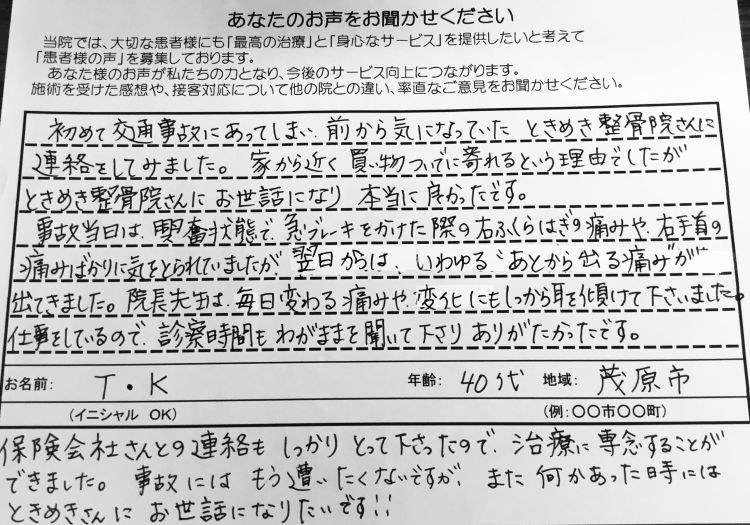 あなたのお声をお聞かせください
当院では、大切な患者様にも「最高の治療」と「身心なサービス」を提供したいと考えて
「患者様の声」を募集しております。
あなた様のお声が私たちの力となり、今後のサービス向上につながります。
施術を受けた感想や、接客対応について他の院との違い、率直なご意見をお聞かせください。
初めて交通事故にあってしまい、前から気になっていた ときめき整骨院さんに
連絡をしてみました。家から近く買い物ついでに寄れるという理由でしたが
ときめき整骨院さんにお世話になり 本当に良かったです。
事故当日は、興奮状態で、急ブレーキをかけた際の右ふくらはぎの痛みや、右手首の
痛みばかりに気をとられていましたが、翌日からは、いわゆる"あとから出る痛み"が
出てきました。院長先生は、毎日変わる痛みや、変化にもしっかり耳を傾けて下さいました。
仕事をしているので、診察時間も わがままを聞いて下さり ありがたかったです。
お名前: T・K 年齢: 40代 地域: 茂原市
(イニシャル OK) (例:〇〇市〇〇町)
保険会社さんとの連絡も しっかり とって下さったので、治療に専念することが
できました。事故には もう遭いたくないですが、また何かあった時には
ときめきさんに お世話になりたいです!!